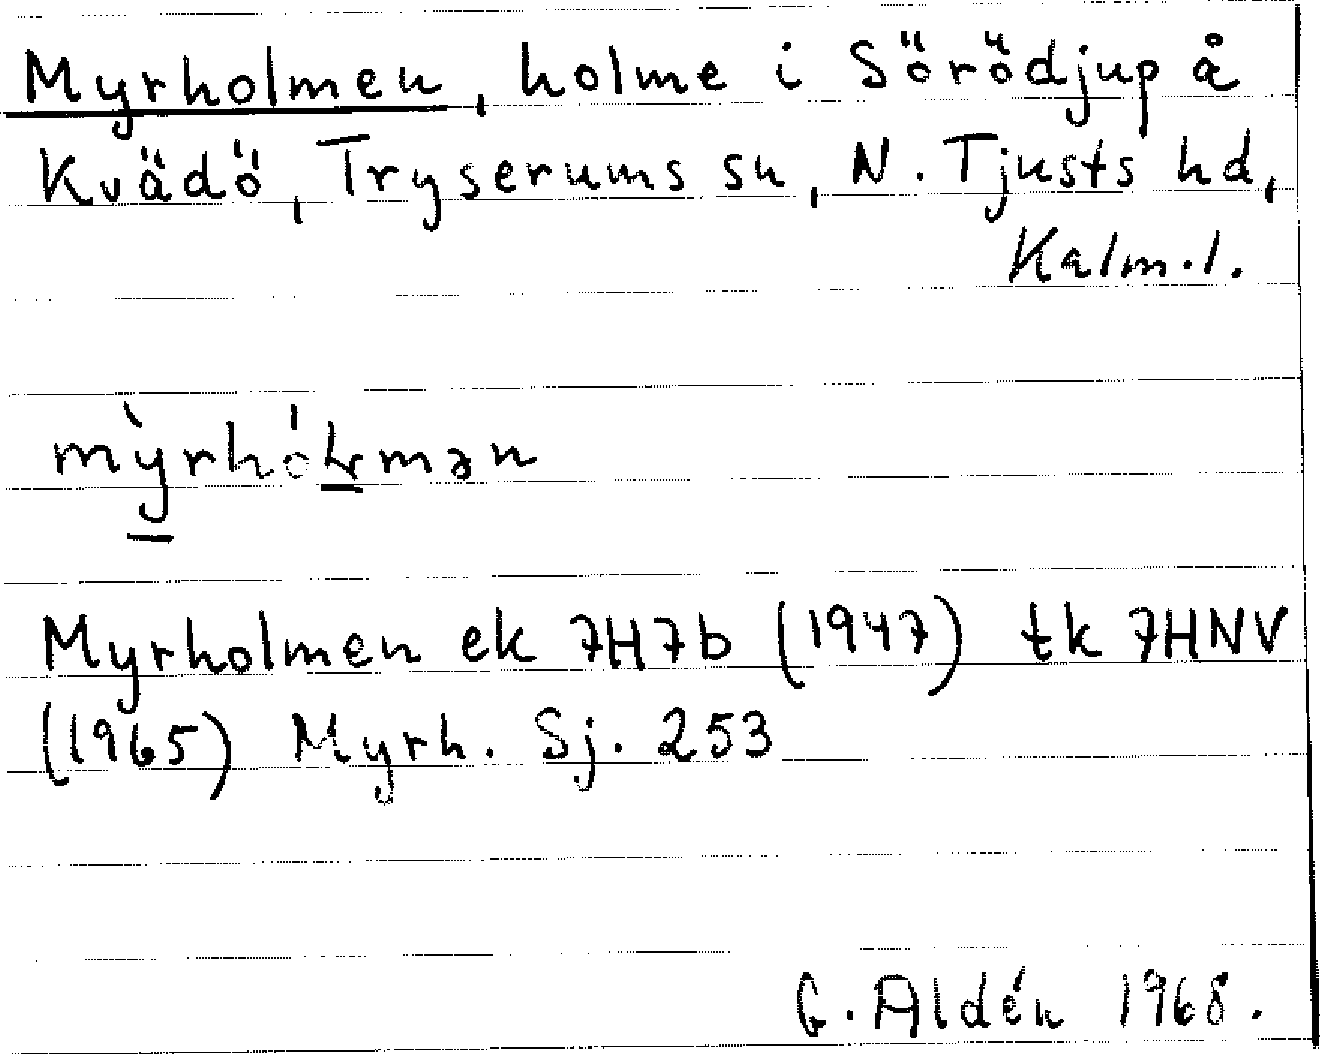 Myrholmen, holme i Sörödjup å
Kvädö, Tryserums sn, N. Tjusts hd,
Kalm. l.
Myrholmen ek 7H7b (1947) tk 7HNV
(1965) Myrh. Sj. 253
G. Aldén 1968.